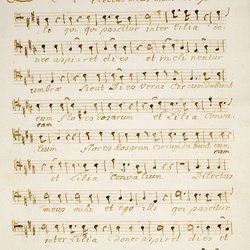 Dilectus meus mihi et ego
illi qui pascitur inter Lilia do:
nec aspiret dies et inclinentur
umbræ Sicut Dies Verni Circumdabunt
eam flores Rosarum et Lilia Conva:
eam
lium flores Rosarum circumdabunt eam
eam
et Lilia Convalium. Dilectus
meus mihi et ego illi qui pascitur
inter Lilia donec aspiret dies et